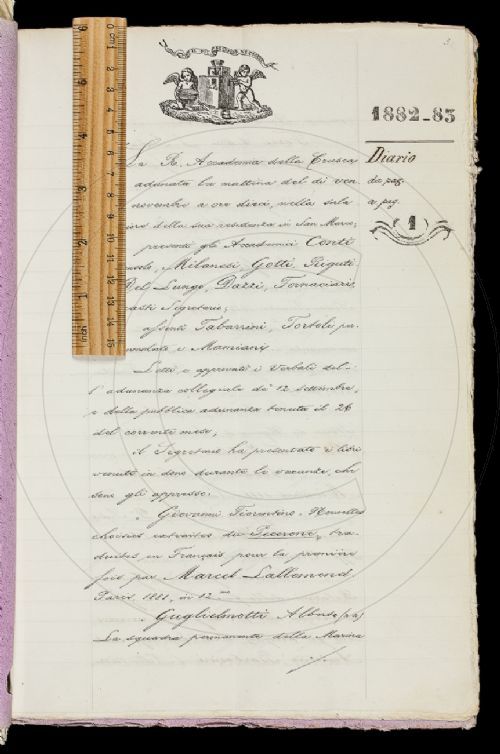 1882-83
Diario
da pag.
a pag.
1
La R. Accademia della Crusca
adunata la mattina del dì ven
novembre a ore dieci, nella sala
della sua residenza in San Marco,
presenti gli Accademici Conti
Milanesi, Gotti, Rigutini
Del Lungo, Dazzi, Fornaciari,
Segretario;
assenti Tabarrini, Tortoli
e Mamiani
Letti e approvati i Verbali del-
l'adunanza collegiale de' 12 settembre,
e della pubblica adunanza tenuta il 26
del corrente mese,
il Segretario ha presentato i libri
venuti in dono durante le vacanze, che
sono gli appresso:
Giovanni Fiorentino. Nouvelles
choisies extraites du Pecorone, tra-
duites en Français pour la première
fois par Marcel Lallemend
Paris, 1881, in 12.mo
Guglielmotti Alberto
La squadra permanente della Marina